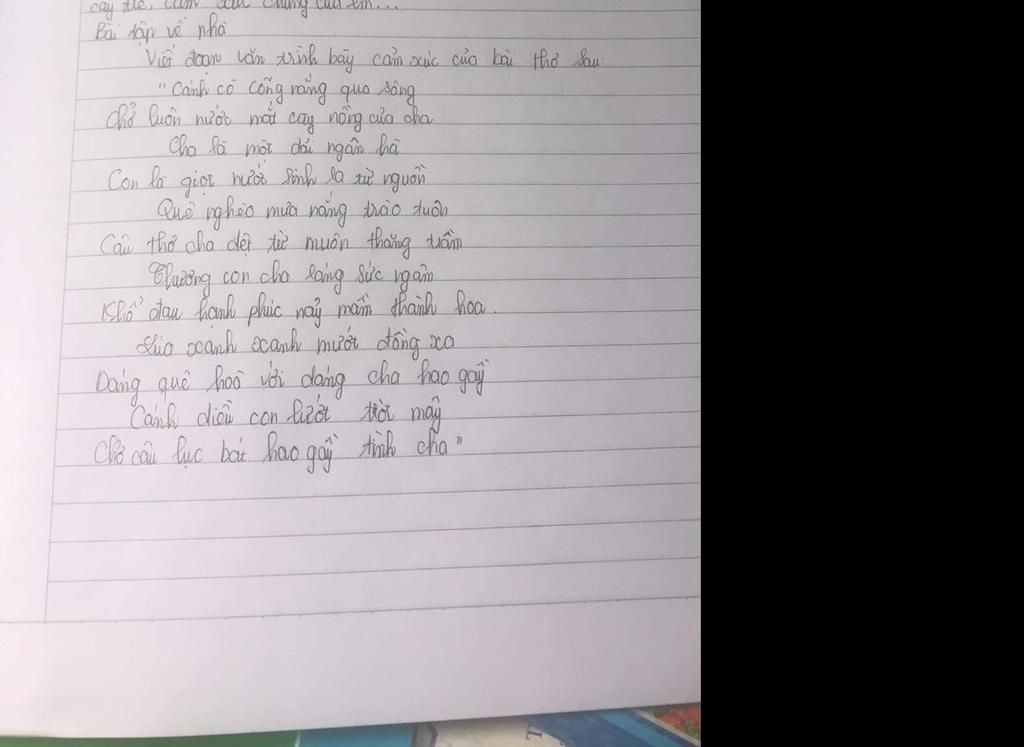 Bài tập về nhà
Viết đoạn văn trình bày cảm xúc của bài thơ sau:
"Cánh cò cõng nắng qua sông
Chở luôn nước mắt cay nồng của cha
Cha là một dải ngân hà
Con là giọt nước sinh ra từ nguồn
Quê nghèo mưa nắng trào tuôn
Câu thơ cha dệt từ muôn thăng trầm
Thương con cha lặng sức ngầm
Khổ đau hạnh phúc nảy mầm thành hoa.
Lúa xanh xanh mướt đồng xa
Dáng quê hoà với dáng cha hao gầy
Cánh diều con lướt trời mây
Chở câu lục bát hao gầy tình cha"